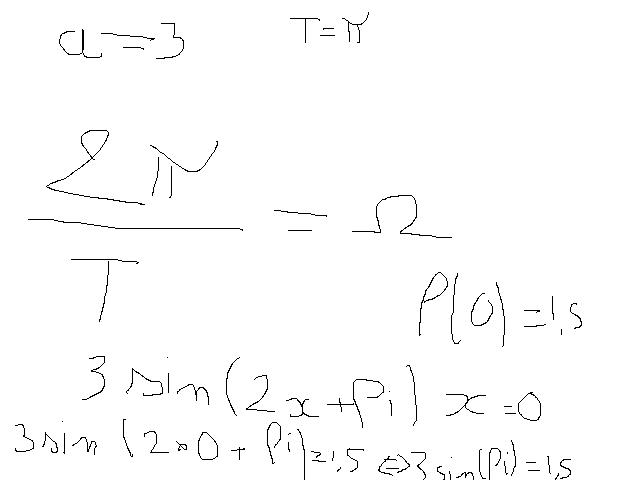 a=3 T=π
2π
T
= Ω
P(0)=1,5
3 sin(2x+Pi) x=0
3 sin(2*0+Pi)=1,5 ⇔ 3 sin(Pi)=1,5